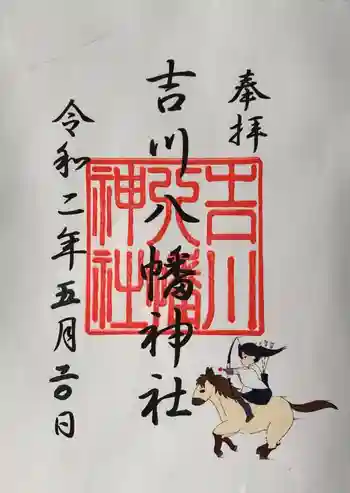 奉拝
吉川八幡神社
吉川
八幡
神社
令和二年五月二〇日